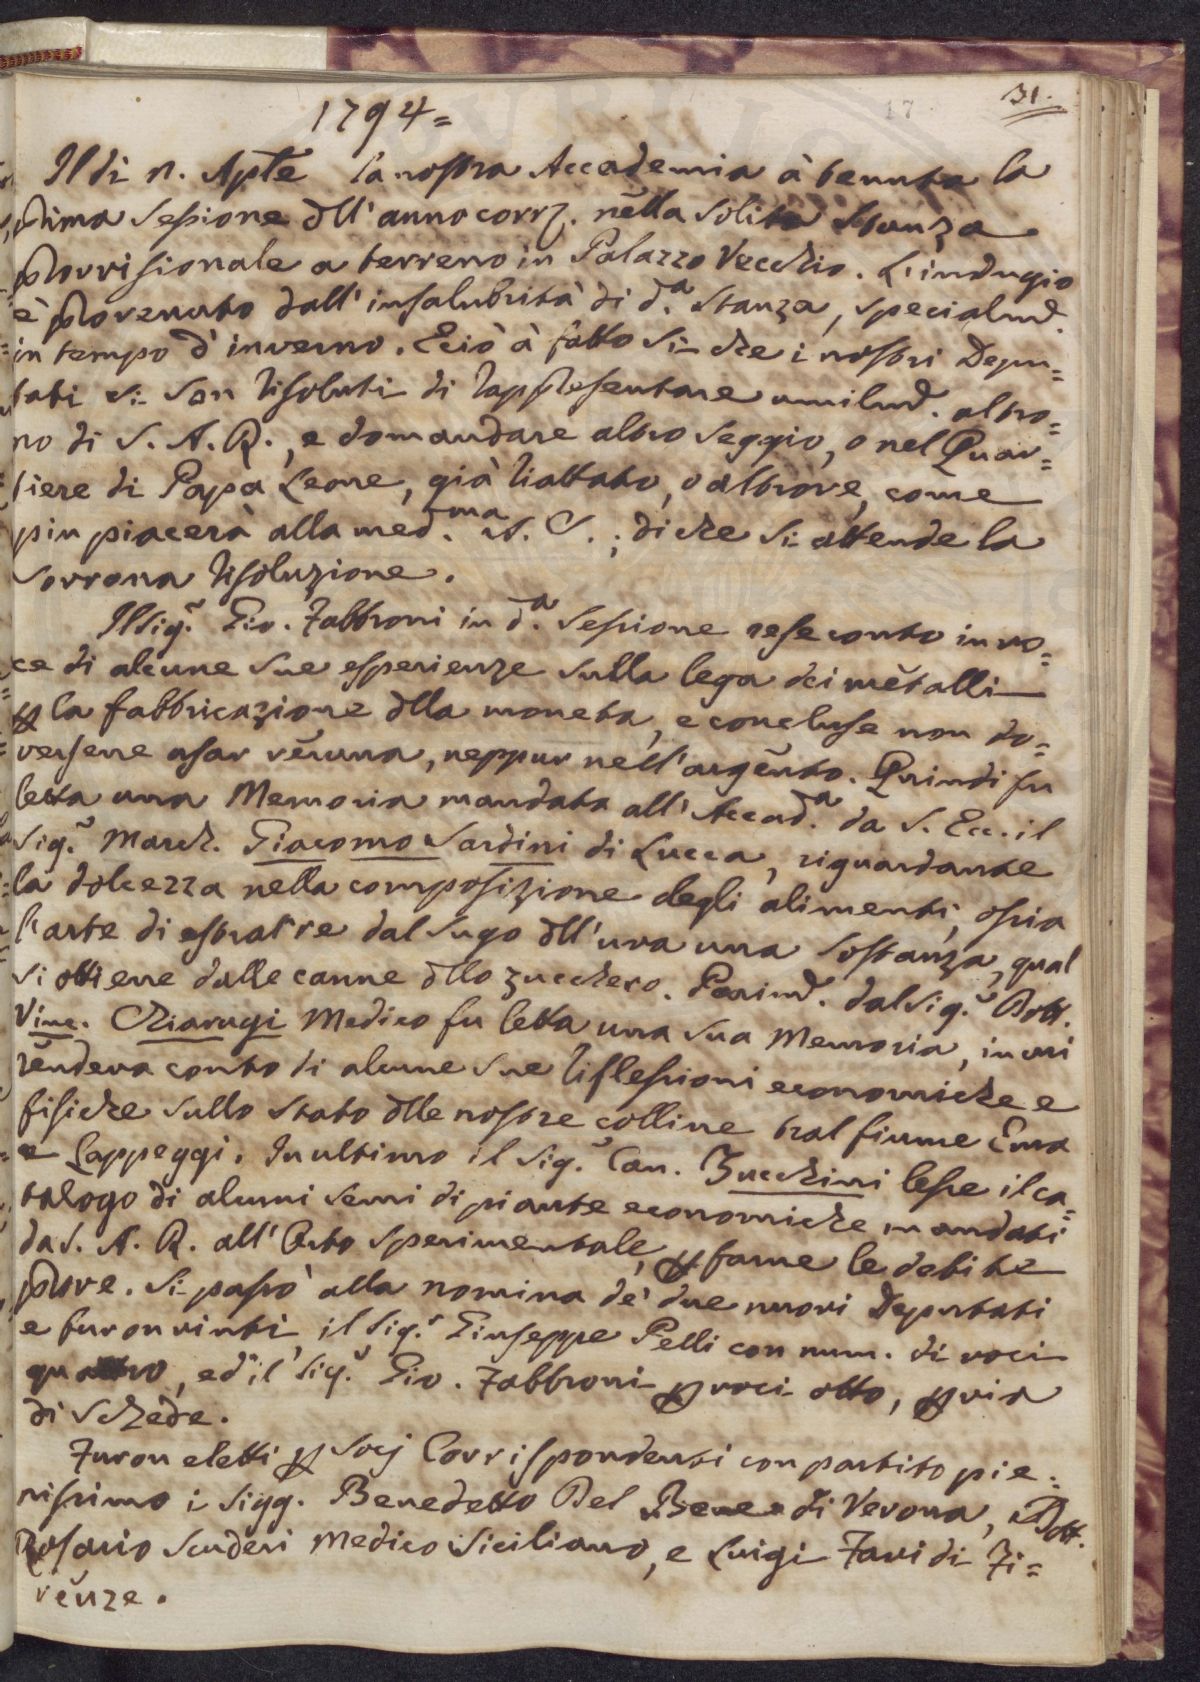 31.
17
1794=
Il dì 2. Aple la nostra Accademia à tenuta la
prima Sessione dll' anno corr. nella solita Stanza
provvisionale a terreno in Palazzo Vecchio. L'indugio
è provenuto dall' insalubrità di d.a Stanza, specialmd.
in tempo d'inverno. E ciò à fatto si che i nostri Depu=
tati si son risoluti di rappresentare umilmd. al tro=
no di S. A. R., e domandare altro Seggio, o nel Quar=
tiere di Papa Leone, già trattato, o altrove, come
piu piacerà alla med.ma A. S.; di che si attende la
Sovrana risoluzione.
Il Sig.r Gio. Fabbroni in d.a Sessione rese conto in vo=
ce di alcune sue esperienze sulla lega dei metalli
p la fabbricazione dlla moneta, e concluse non do=
versene usar veruna, neppur nell' argento. Quindi fu
letta una Memoria mandata all' Accad.a da S. Ecc. il
Sig.r March. Giacomo Sardini di Lucca, riguardante
la dolcezza nella composizione degli alimenti, ossia
l'arte di estrarre dal sugo dll' uva una sostanza, qual
si ottiene dalle canne dllo zucchero. Parimd. dal Sig.r Dott.
Vinc. Chiarugi Medico fu letta una sua Memoria, in cui
rendeva conto di alcune sue riflessioni economiche e
fisiche sullo stato dlle nostre colline tral fiume Ema
e Lappeggi. In ultimo il Sig.r Can. Zucchini lesse il ca=
talogo di alcuni semi di piante economiche mandati
da S. A. R. all' Orto sperimentale, p farne le debite
prove. Si passò alla nomina de' due nuovi Deputati
e furon vinti, il Sig.r Giuseppe Pelli con num. di voci
quattro, ed il Sig.r Gio. Fabbroni p voci otto, p via
di Schede.
Furon eletti p Socj Corrispondenti con partito pie=
nissimo i Sigg. Benedetto Del Bene di Verona, Dott.
Rosario Scuderi Medico Siciliano, e Luigi Favi di Fi=
renze.